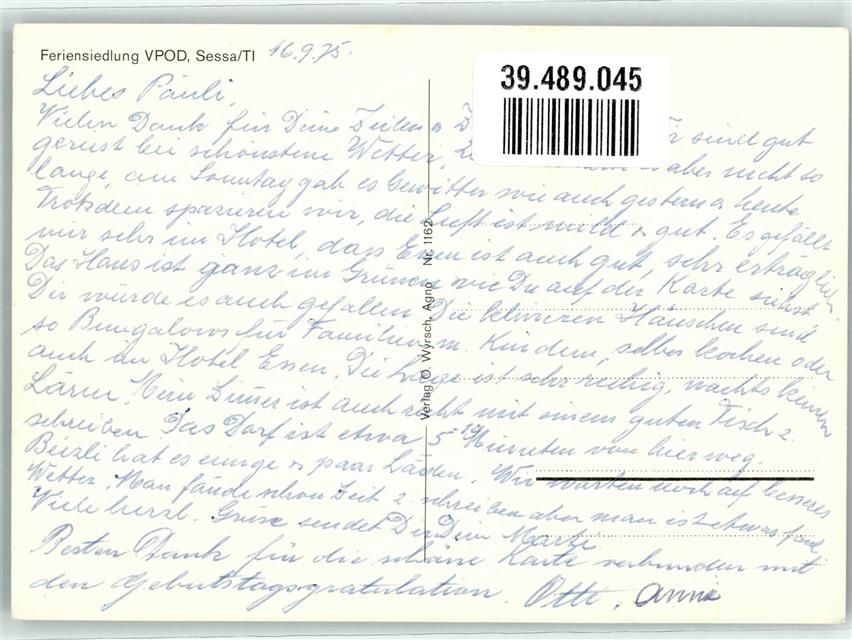 Feriensiedlung VPOD, Sessa/TI 16.9.75.
39.489.045
Liebes Päuli,
Vielen Dank für Deine Zeilen & sind gut
gereist bei schönstem Wetter, aber nicht so
lange, am Sonntag gab es Gewitter wie auch gestern & heute
Trotzdem spazieren wir, die Luft ist mild & gut. Es gefällt
mir sehr im Hotel, das Essen ist auch gut, sehr erträglich
Das Haus ist ganz im Grünen wie Du auf der Karte siehst
Dir würde es auch gefallen. Die kleineren Häuschen sind
so Bungalows für Familien m. Kindern, selber kochen oder
auch im Hotel Essen. Die Lage ist sehr ruhig, nachts keinen
Lärm. Mein Zimmer ist auch recht mit einem guten Tisch z.
schreiben. Das Dorf ist etwa 5 Minuten von hier weg.
Beizli hat es einige & paar Läden. Wir warten noch auf besseres
Wetter. Man fände schon Zeit z. schreiben aber man ist etwas faul
Viele herzl. Grüsse sendet Dir Dein
Besten Dank für die schöne Karte verbunden mit
den Geburtstagsgratulation. Otti, Anni
Verlag O. Wyrsch, Agno Nr. 1162